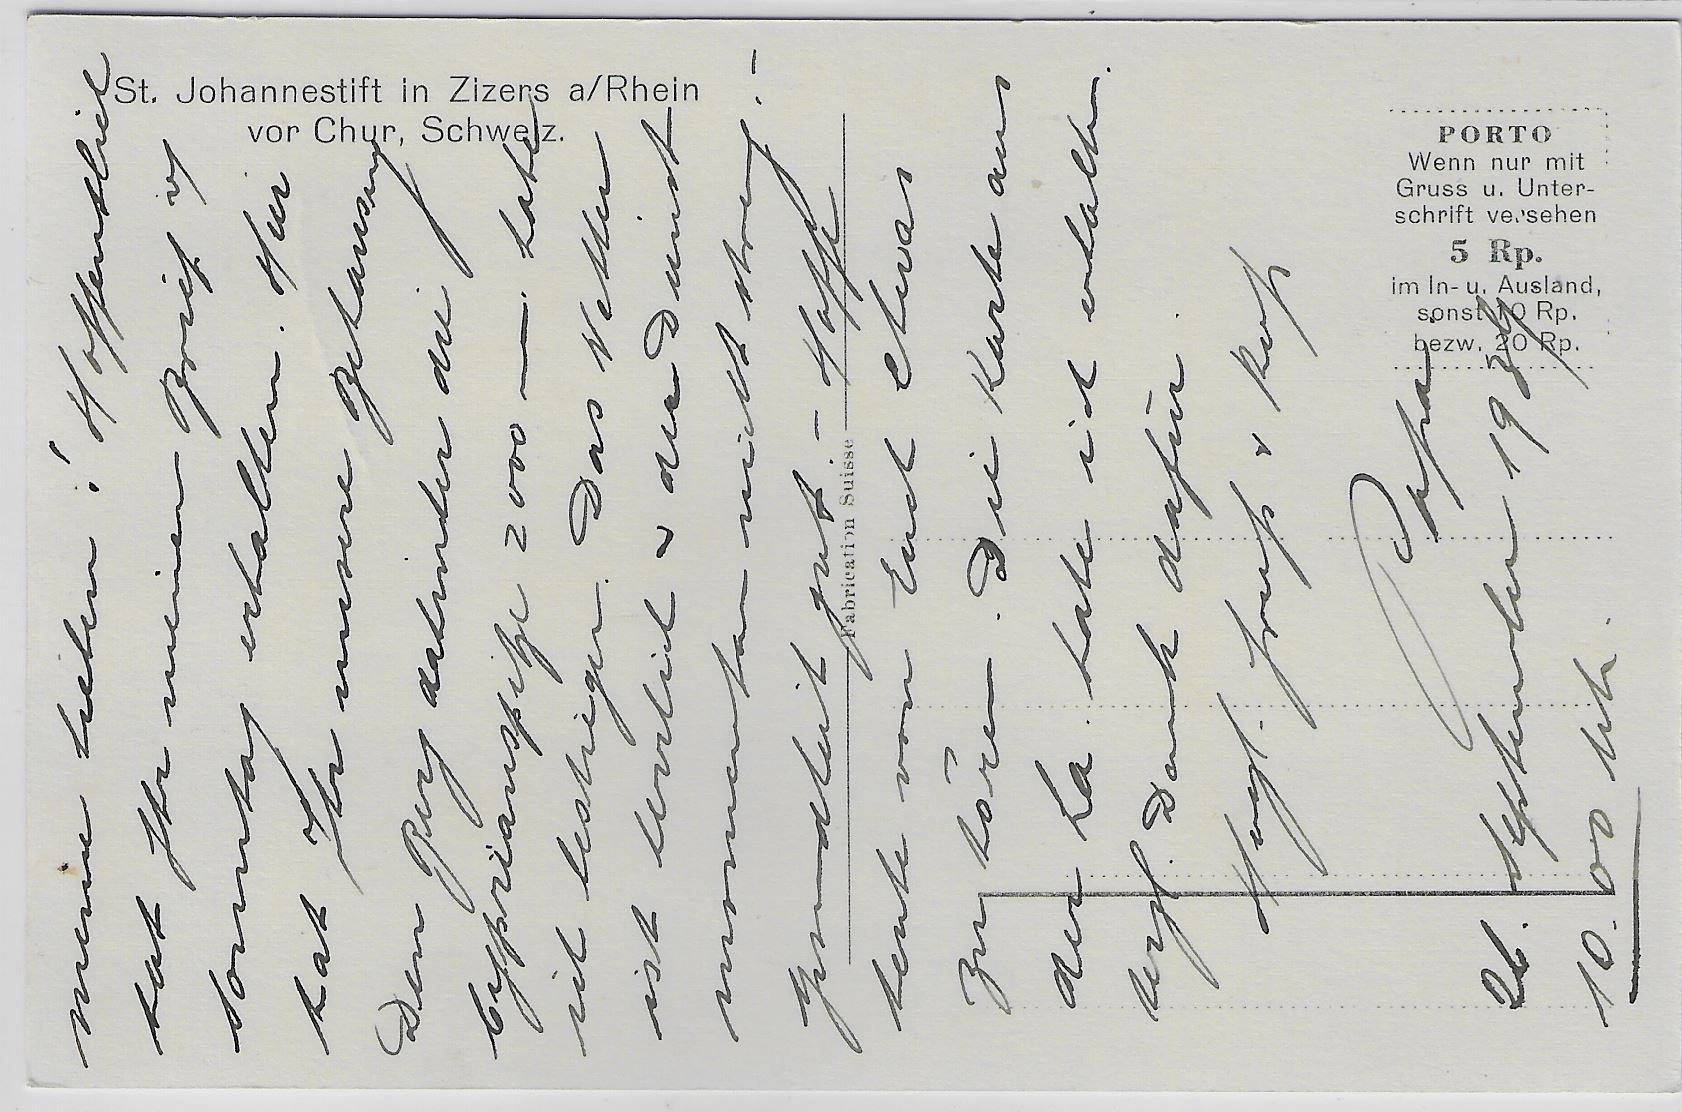 St. Johannestift in Zizers a/Rhein
vor Chur, Schweiz.
PORTO
Wenn nur mit
Gruss u. Unter-
schrift versehen
5 Rp.
im In- u. Ausland,
sonst 10 Rp.
bezw. 20 Rp.
Fabrication Suisse
meine Lieben! Hoffentlich
habt Ihr meinen Brief
Sonntag erhalten. Hier
habt Ihr unsere Behausung
Den Berg dahinter die
Cyprianspitze 2000 — habe
ich bestiegen. Das Wetter
ist herrlich & der Dienst
momentan nicht streng! –
Gesundheit gut – Hoffe
heute von Euch etwas
zu hören – Die Karte aus
der La. habe ich erhalten.
Dank dafür.
Herzl. Gruß & Kuß
Papa.
26. September 19
10.00 Uhr.